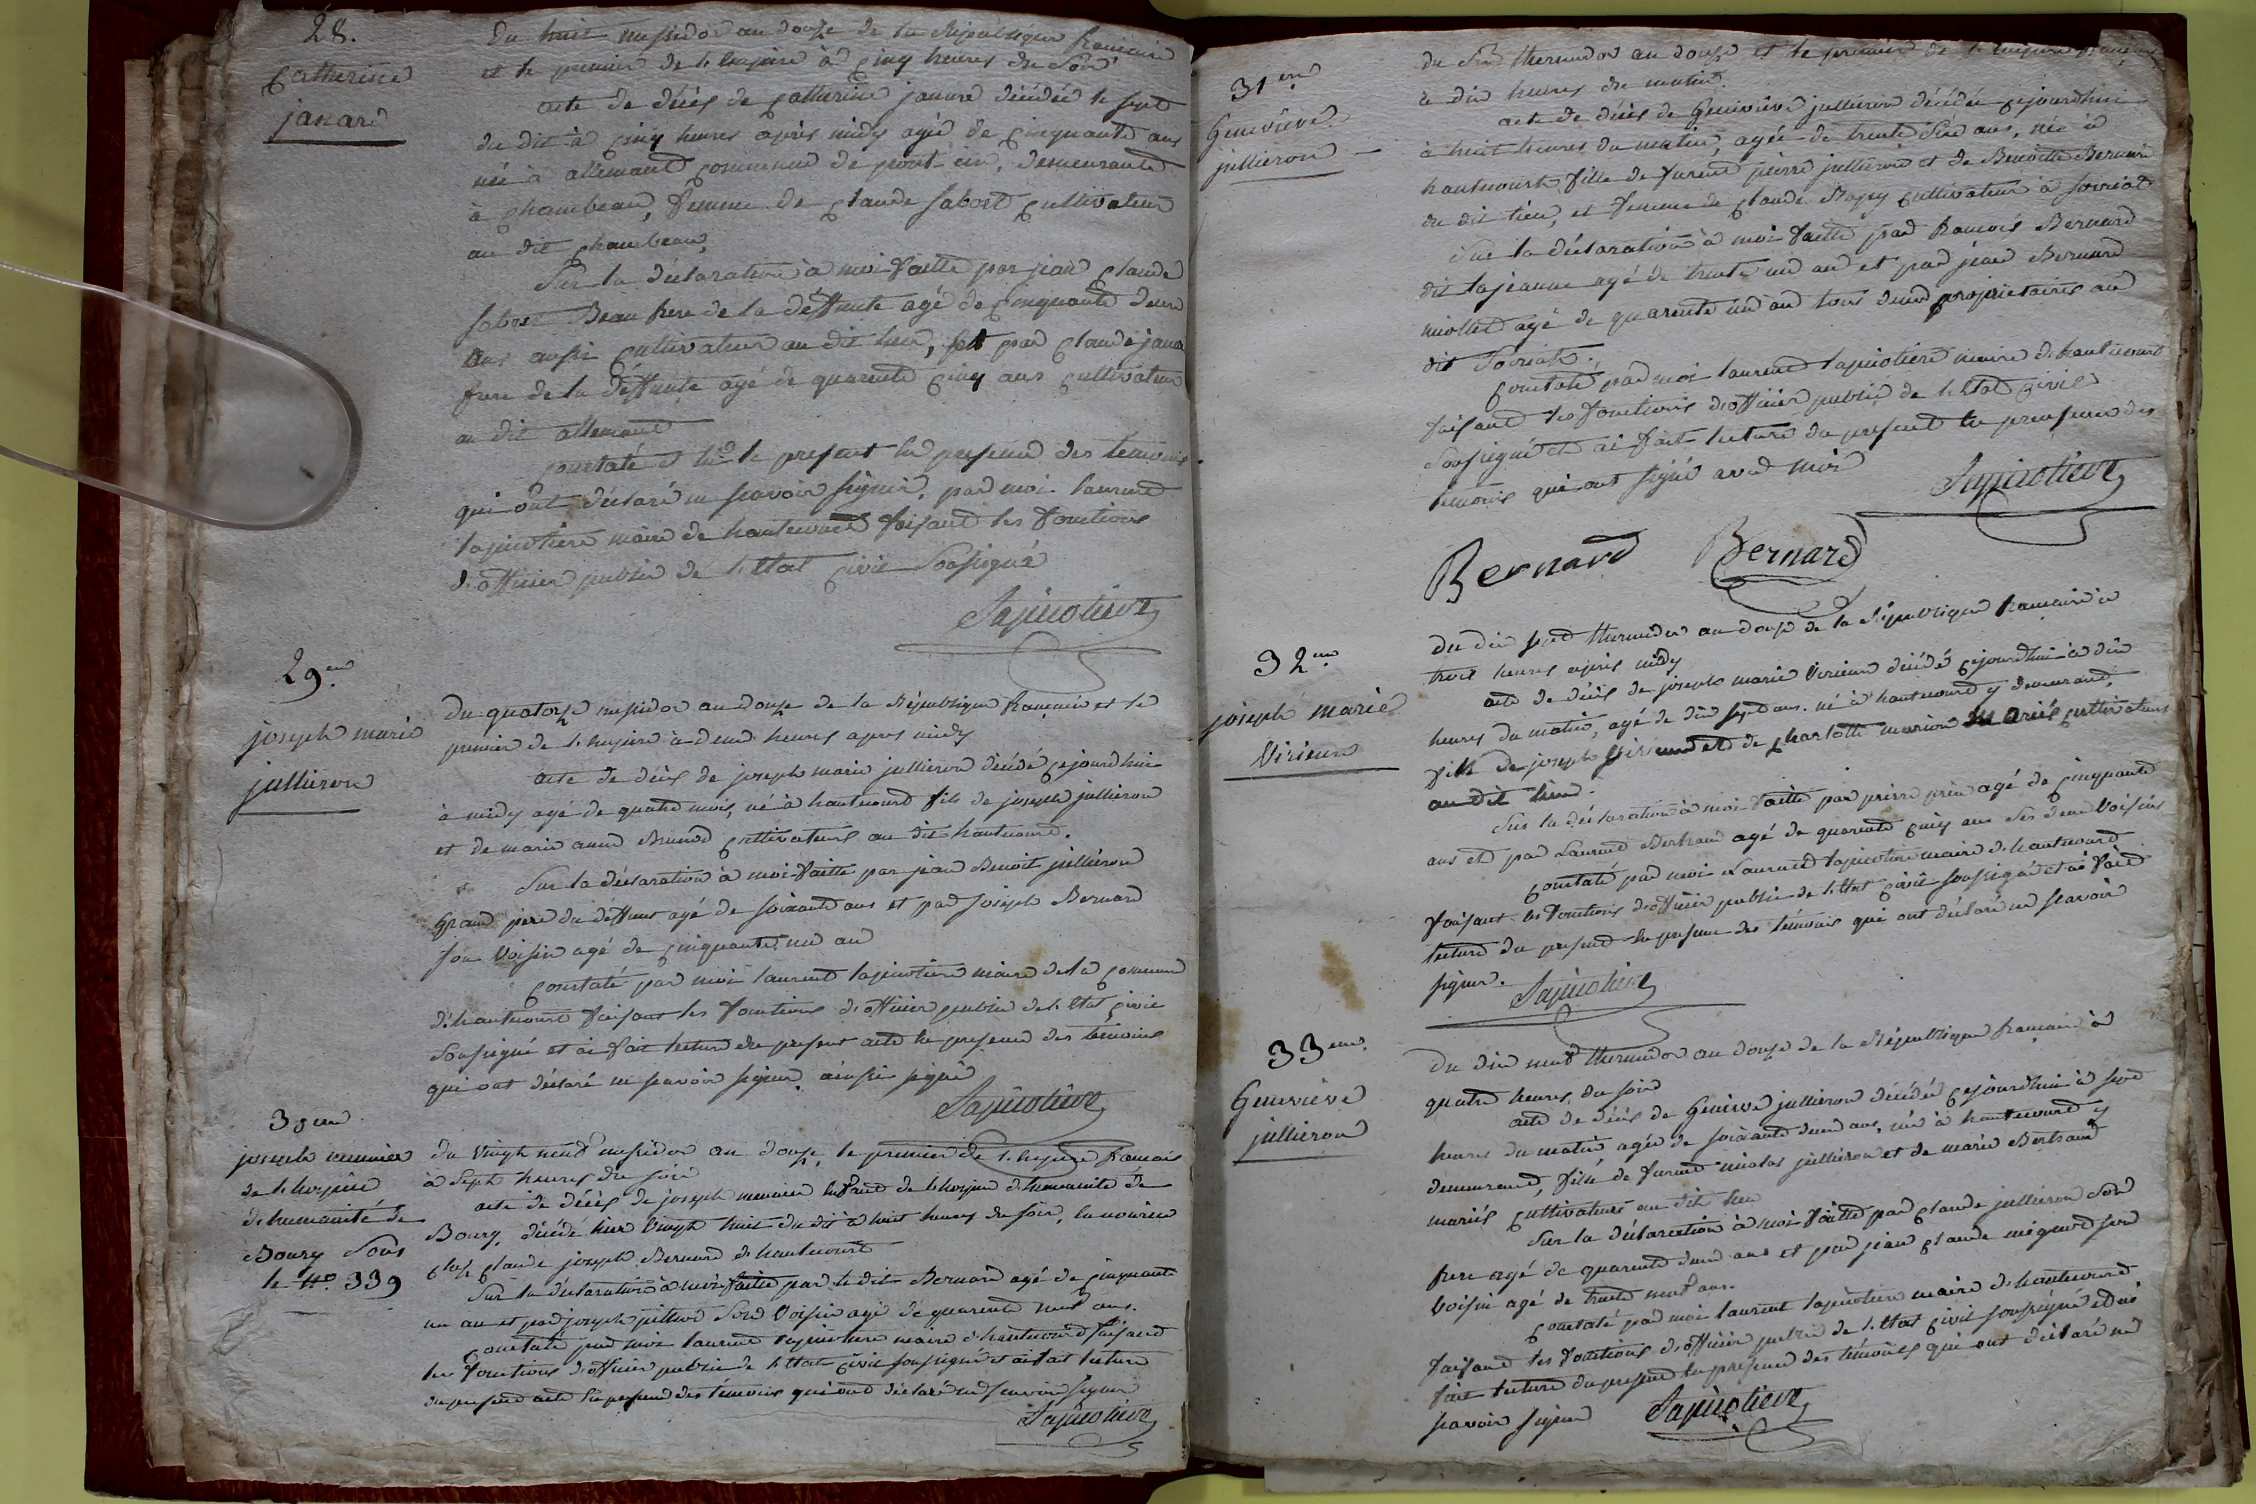 28.
Catherine
janard
Du huit messidor an douze de la République française
et le premier de l'empire à cinq heures du soir
acte de décès de Catherine janard décédée le sept
du dit à cinq heures après midy agée de cinquante ans
née à allemant commune de pont d'ain, demeurante
à chambeau, femme de claude sabost cultivateur
au dit chambeau,
Sur la déclaration à moi faitte par jean claude
sabost Beau frere de la deffunte agé de cinquante deux
ans aussi cultivateur au dit lieu, et par claude janard
frere de la deffunte agé de quarente cinq ans cultivateur
au dit allemant
constaté et lu le present en presence des temoins
qui ont déclaré ne scavoir signer, par moi laurent
lapicotiere maire de hautecourt faisant les fonctions
d'officier public de l'Etat civil Soussigné
Lapicotiere
29em
joseph marie
jullieron
Du quatorze messidor an douze de la République française et le
premier de l'empire à deux heures apres midy
acte de décès de joseph marie jullieron décédé cejourdhui
à midy agé de quatre mois, né à hautecourt fils de joseph jullieron
et de marie anne Brunod cultivateurs au dit hautecourt.
Sur la déclaration à moi faitte par jean Benoit jullieron
grand pere du deffunt agé de soixante ans et par Joseph Bernard
son voisin agé de cinquante un an
constaté par moi laurent lapicotiere maire de la commune
d'hautecourt faisant les fonctions d'officier public de l'Etat civil
Soussigné et ai fait lecture du present acte en presence des témoins
qui ont déclaré ne scavoir signer, ainsi signé
Lapicotiere
30em
joseph
de l'hospice
d'humanité de
Bourg Sous
le No. 339
du vingt neuf messidor an douze, le premier de l'empire français
à sept heures du soir
acte de décès de joseph enfant de l'hospice d'humanité de
Bourg, décédé hier vingt huit du dit à huit heures du soir, en nourrice
chez claude joseph Bernard d'hautecourt
Sur la déclaration à moi faitte par le dit Bernard agé de cinquante
un an et par joseph son voisin agé de quarente neuf ans.
constaté par moi laurent lapicotiere maire d'hautecourt faisant
les fonctions d'officier public de l'Etat civil soussigné et ai fait lecture
du present acte en presence des témoins qui ont déclaré ne scavoir signer
Lapicotiere
31em
Geneviève
jullieron
du Six thermidor an douze et le premier de l'empire français
à dix heures du matin.
acte de décès de Geneviève jullieron décédée cejourdhui
à huit heures du matin, agée de trente six ans, née à
hautecourt fille de furent pierre jullieron et de Benoitte Bernard
du dit lieu, et femme de claude cultivateur à soiriat
Sur la déclaration à moi faitte par francois Bernard
dit lajeanne agé de trente un an et par jean Bernard
agé de quarente un an tous deux proprietaires au
dit Soiriat.
constaté par moi laurent lapicotiere maire d'hautecourt
faisant les fonctions d'officier public de l'Etat civil
Soussigné et ai fait lecture du present en presence des
témoins qui ont signé avec moi
Lapicotiere
Bernard Bernard
32em
joseph marie
Virieux
du dix sept thermidor an douze de la République francaise à
trois heures après midy
acte de décès de joseph marie Virieux décédé cejourdhui à dix
heures du matin, agé de dix sept ans. né à hautecourt y demeurant,
fils de joseph Virieux et de charlotte mariés cultivateurs
au dit lieu.
Sur la déclaration à moi faitte par pierre agé de cinquante
ans et par Laurent Bertrand agé de quarente cinq ans ses deux voisins
constaté par moi Laurent lapicotiere maire d'hautecourt
faisant les fonctions d'officier public de l'Etat civil soussigné et ai fait
lecture du present en presence des témoins qui ont déclaré ne scavoir
signer.
Lapicotiere
33em.
Geneviève
jullieron
Du dix neuf thermidor an douze de la République francaise à
quatre heures du soir
acte de décès de Genieve jullieron décédée cejourdhui à sept
heures du matin agée de soixante deux ans, née à hautecourt y
demeurant, fille de furent nicolas jullieron et de marie Bertrand
mariés cultivateurs au dit lieu
Sur la déclaration à moi faitte par claude jullieron son
frere agé de quarente deux ans et par jean claude son
voisin agé de trente neuf ans.
constaté par moi laurent lapicotiere maire d'hautecourt
faisant les fonctions d'officier public de l'Etat civil soussigné et ai
fait lecture du present en presence des témoins qui ont déclaré ne
scavoir signer
Lapicotiere